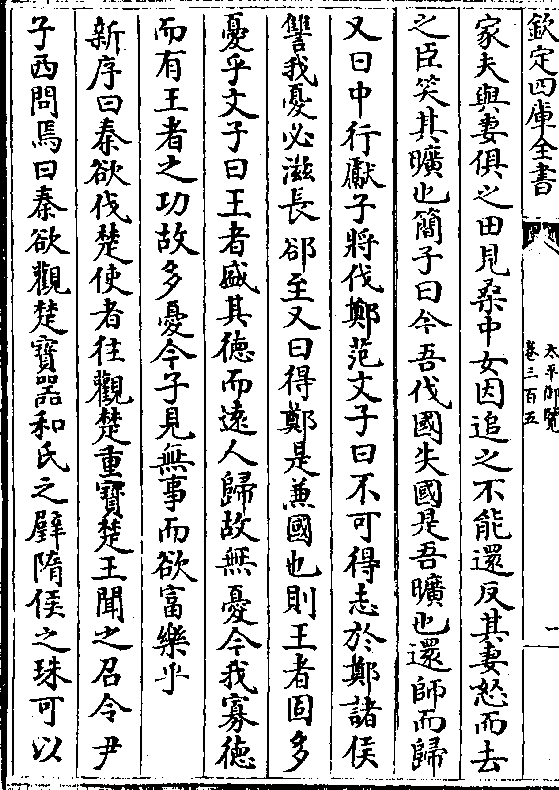 欽定四庫全書
太平御覽
卷三百五
一
家夫與妻俱之田見桑中女因追之不能還反其妻怒而去
之臣笑其曠也簡子曰今吾伐國失國是吾曠也還師而歸
又曰中行獻子將伐鄭范文子曰不可得志於鄭諸侯
讐我憂必滋長郤至又曰得鄭是兼國也則王者固多
憂乎文子曰王者盛其德而遠人歸故無憂今我寡德
而有王者之功故多憂今子見無事而欲富樂乎
新序曰秦欲伐楚使者往觀楚重寶楚王聞之召令尹
子西問焉曰秦欲觀楚寶器和氏之璧隋侯之珠可以